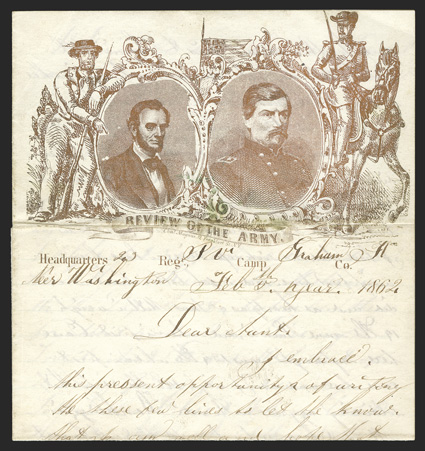 REVIEW OF THE ARMY.
Headquarters 2d Reg. P V Camp Graham Co. K
Near Washington Feb 1862
Dear Aunt
I embrace
this pressent opportunity of writing
the these few lines to let the know
that I am well and hope that